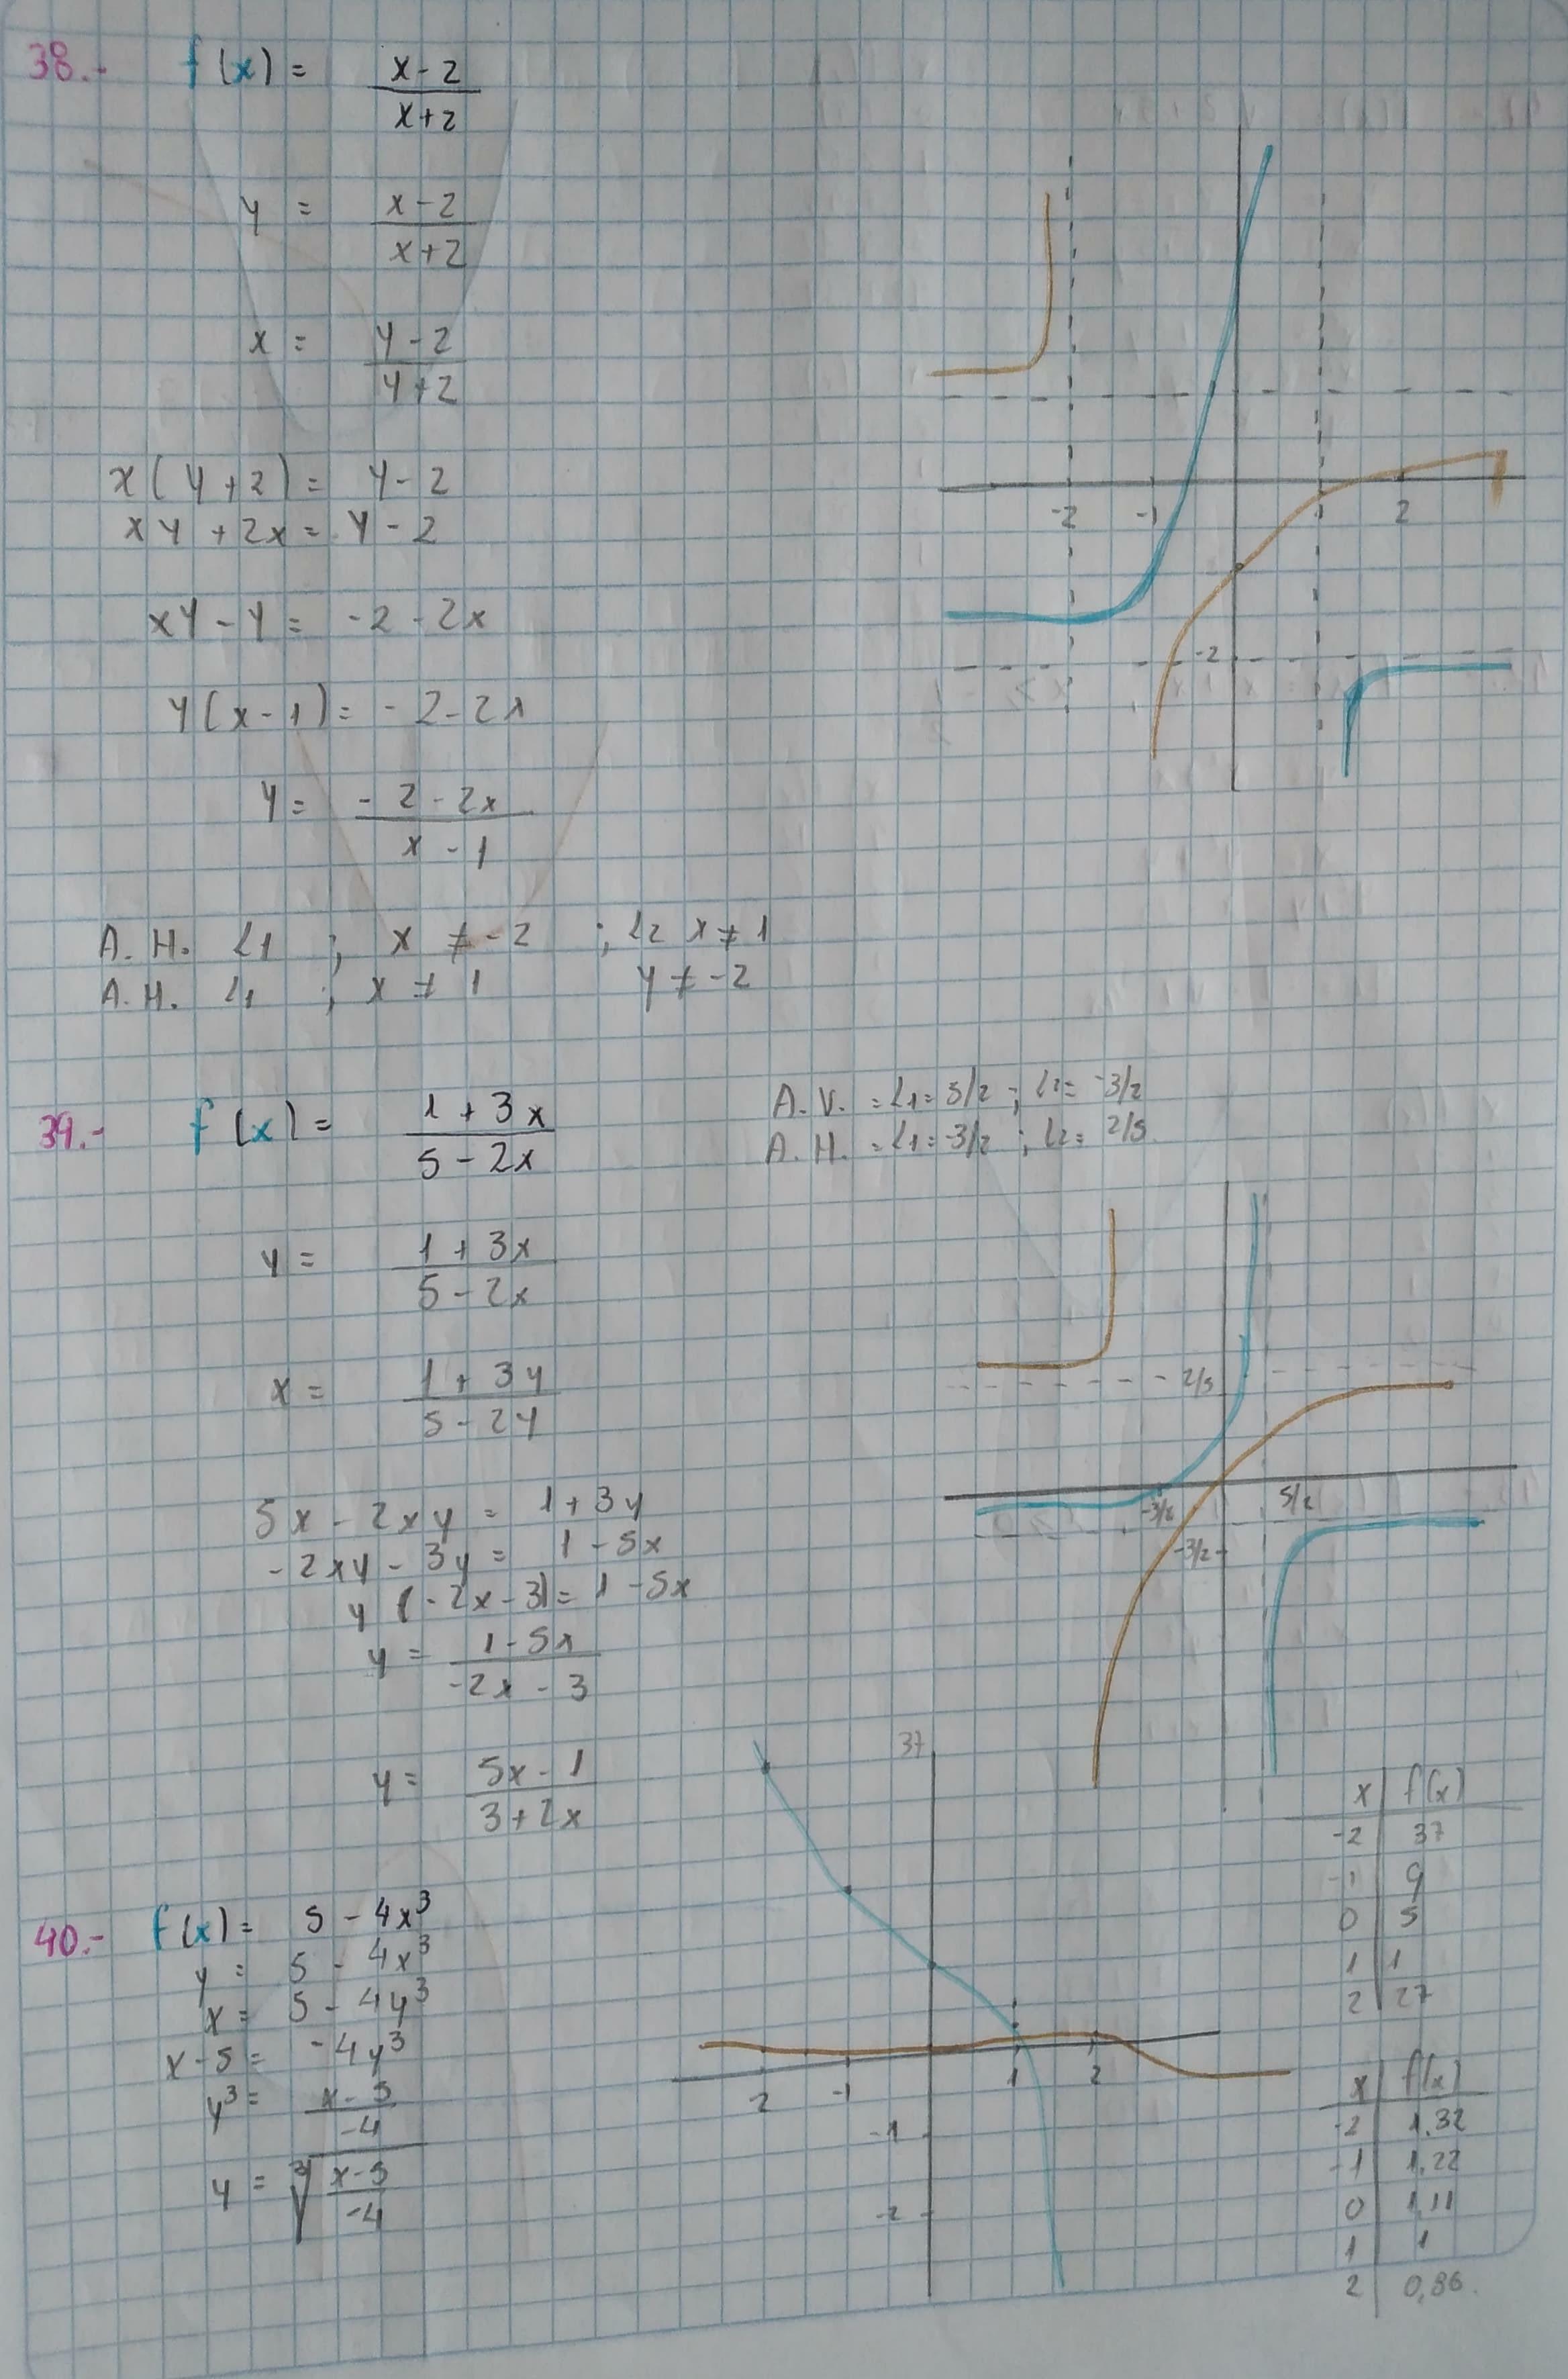 38.- f(x) = x-2 / x+2
y = x-2 / x+2
x = y-2 / y+2
x(y+2) = y-2
xy + 2x = y-2
xy - y = -2-2x
y(x-1) = -2-2x
y = -2-2x / x-1
A.H. L1 ; x ≠ -2 ; L2 x ≠ 1
A.H. L1 ; x ≠ 1 y ≠ -2
-2 -1 2
-2
39.- f(x) = 1+3x / 5-2x
A.V. = L1 = 5/2 ; L2 = -3/2
A.H. = L1 = -3/2 ; L2 = 2/5
y = 1+3x / 5-2x
x = 1+3y / 5-2y
5x - 2xy = 1+3y
-2xy - 3y = 1-5x
y (-2x-3) = 1-5x
y = 1-5x / -2x-3
y = 5x-1 / 3+2x
2/5
-3/2 5/2
-3/2
40.- f(x) = 5-4x³
y = 5-4x³
x = 5-4y³
x-5 = -4y³
y³ = x-5 / -4
y = ³√(x-5 / -4)
37
2 -1 1 2
-1
-2
x | f(x)
-2 | 37
-1 | 9
0 | 5
1 | 1
2 | 27
x | f(x)
-2 | 1.32
-1 | 1.22
0 | 1,11
1 | 1
2 | 0,86.